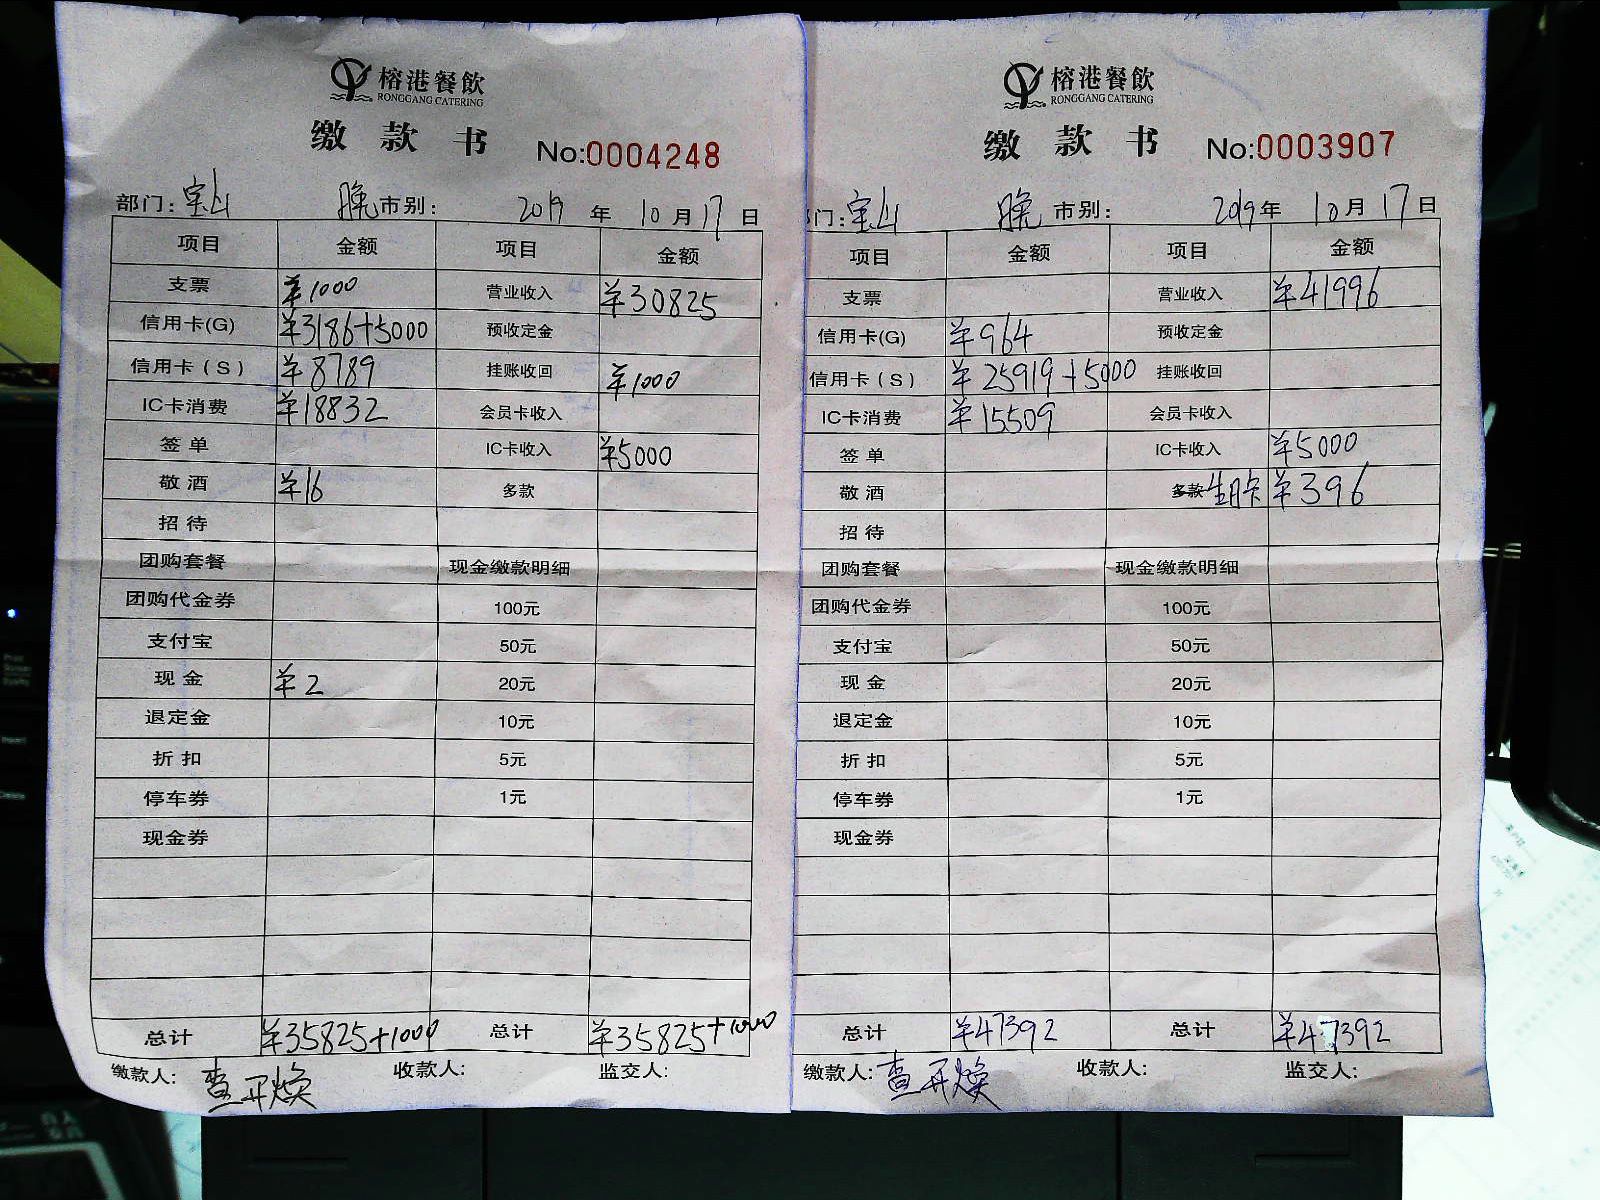 榕港餐飲
RONGGANG CATERING
缴款书 No:0004248
部门: 宝山 晚市别: 2019年10月17日
项目 金额 项目 金额
支票 ¥1000 营业收入 ¥30825
信用卡(G) ¥3186+5000 预收定金
信用卡(S) ¥8789 挂账收回 ¥1000
IC卡消费 ¥18832 会员卡收入
签单 IC卡收入 ¥5000
敬酒 ¥16 多款
招待
团购套餐 现金缴款明细
团购代金券 100元
支付宝 50元
现金 ¥2 20元
退定金 10元
折扣 5元
停车券 1元
现金券
总计 ¥35825+1000 总计 ¥35825+1000
缴款人: 查开焕 收款人: 监交人:
榕港餐飲
RONGGANG CATERING
缴款书 No:0003907
门: 宝山 晚市别: 2019年10月17日
项目 金额 项目 金额
支票 营业收入 ¥41996
信用卡(G) ¥964 预收定金
信用卡(S) ¥25919+5000 挂账收回
IC卡消费 ¥15509 会员卡收入
签单 IC卡收入 ¥5000
敬酒 多款 生日卡 ¥396
招待
团购套餐 现金缴款明细
团购代金券 100元
支付宝 50元
现金 20元
退定金 10元
折扣 5元
停车券 1元
现金券
总计 ¥47392 总计 ¥47392
缴款人: 查开焕 收款人: 监交人: